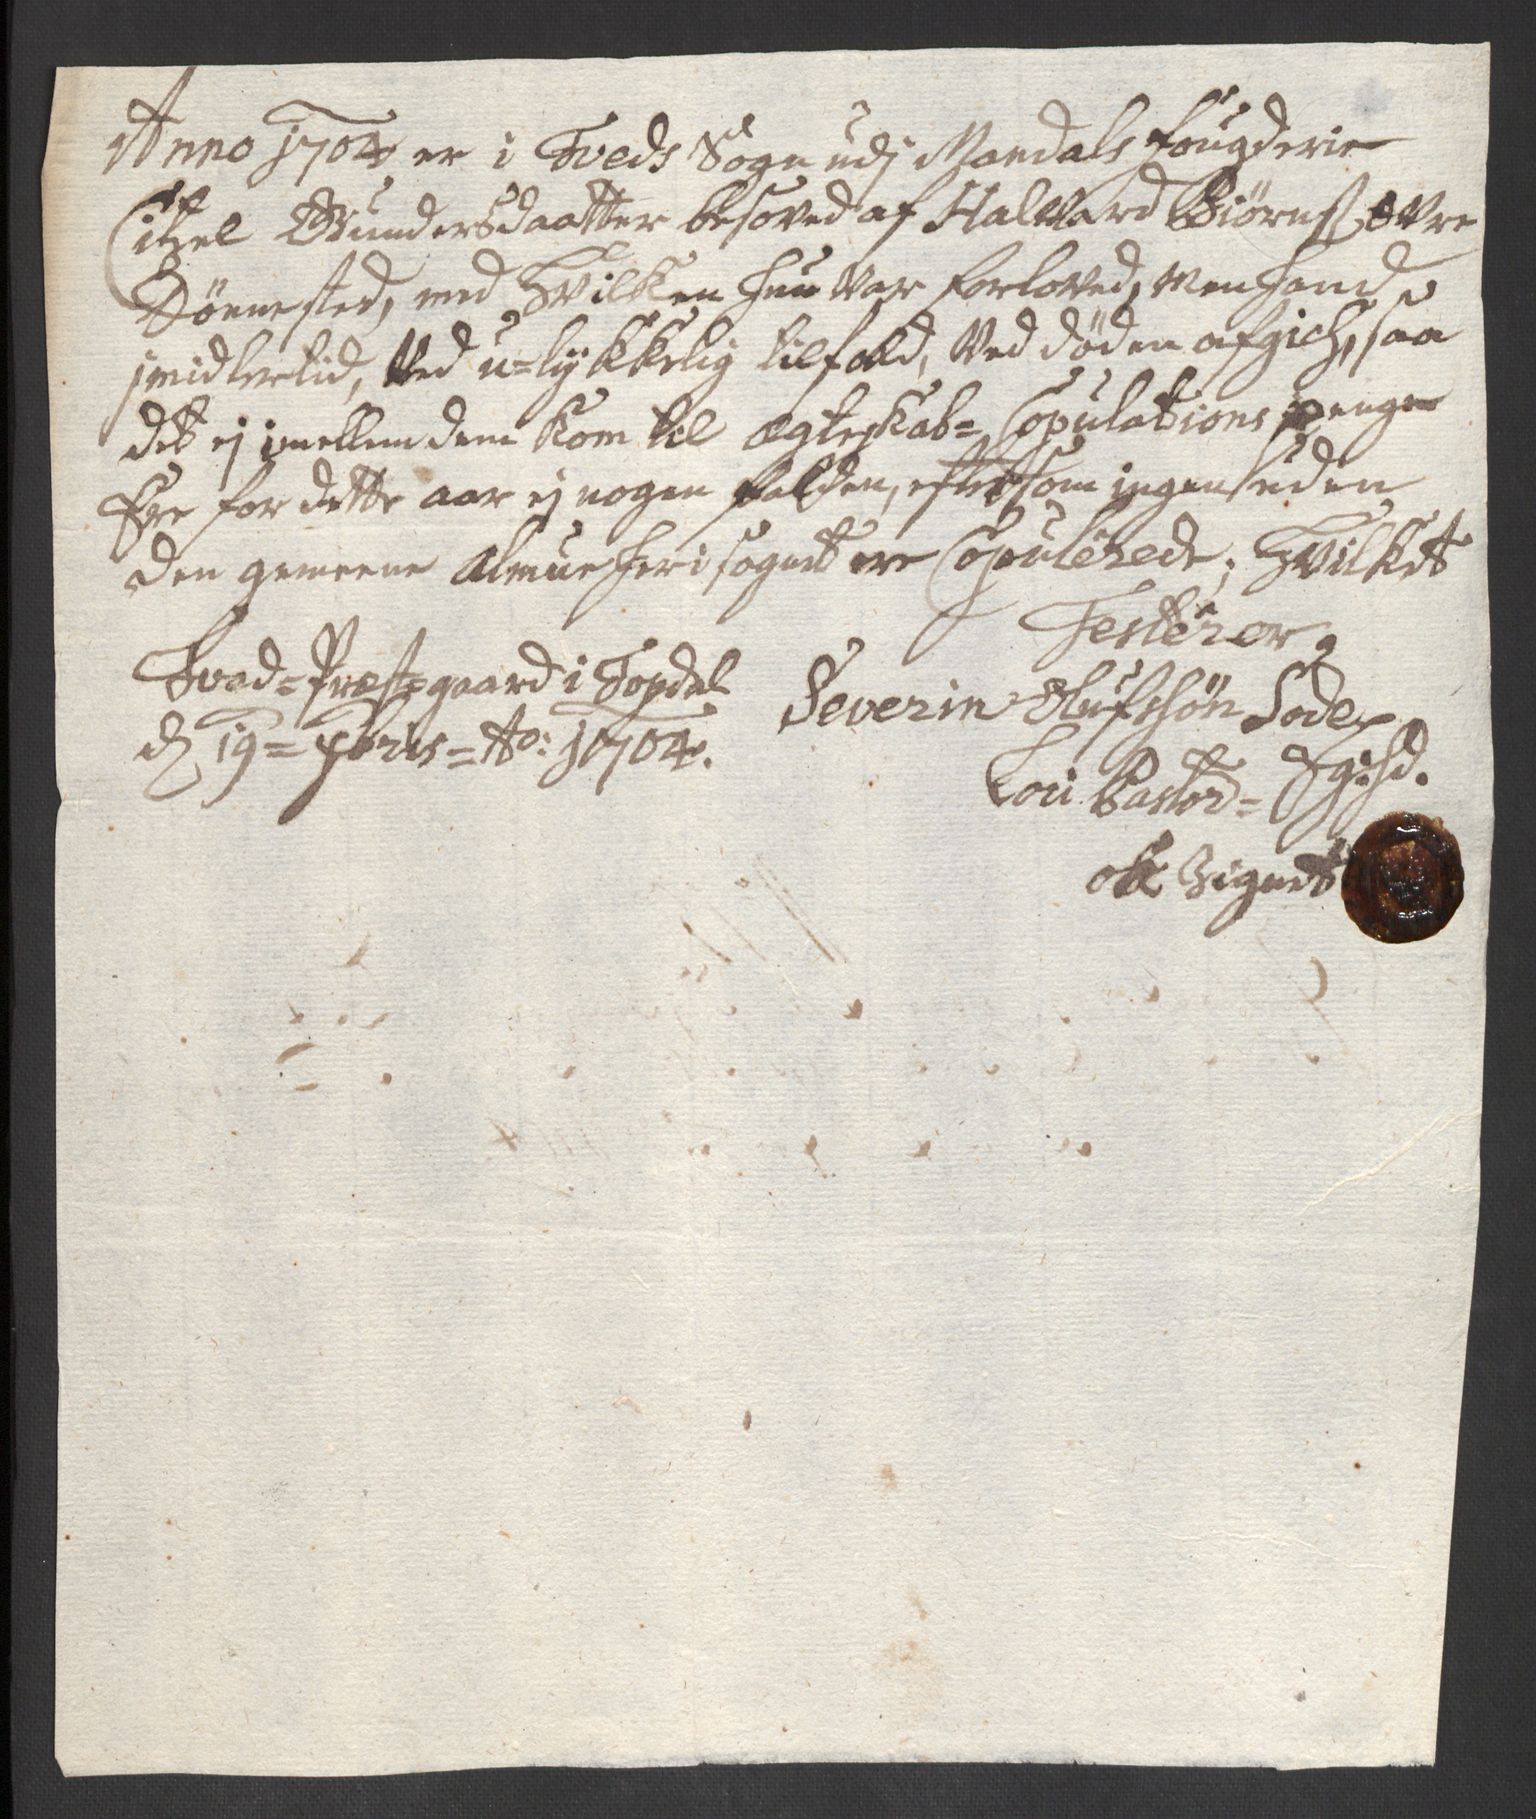 Anno 1704 er i Tveds Sogn udj Mandals fougderie
Citzel Gundersdaatter besoved af Halvard Biørnss. Øvre
Dönnested, med Hvilken hun var forloved, men hand
jmidlertid, ved u=lykkelig tilfald, ved döden afgich, saa
det ej imellem dem kom til Ægteskab= Copulations penge
Ere for dette aar ej nogen falden, eftersom ingen uden
den gemeene Almue her i sognet ere Copulerede; Hvilket
Testerer,
Tvad=Præstegaard i Topdal
Severin Olufssön Lode
d 19= Xbris= Ao: 1704.
Loci Pastor=
ok Zignet